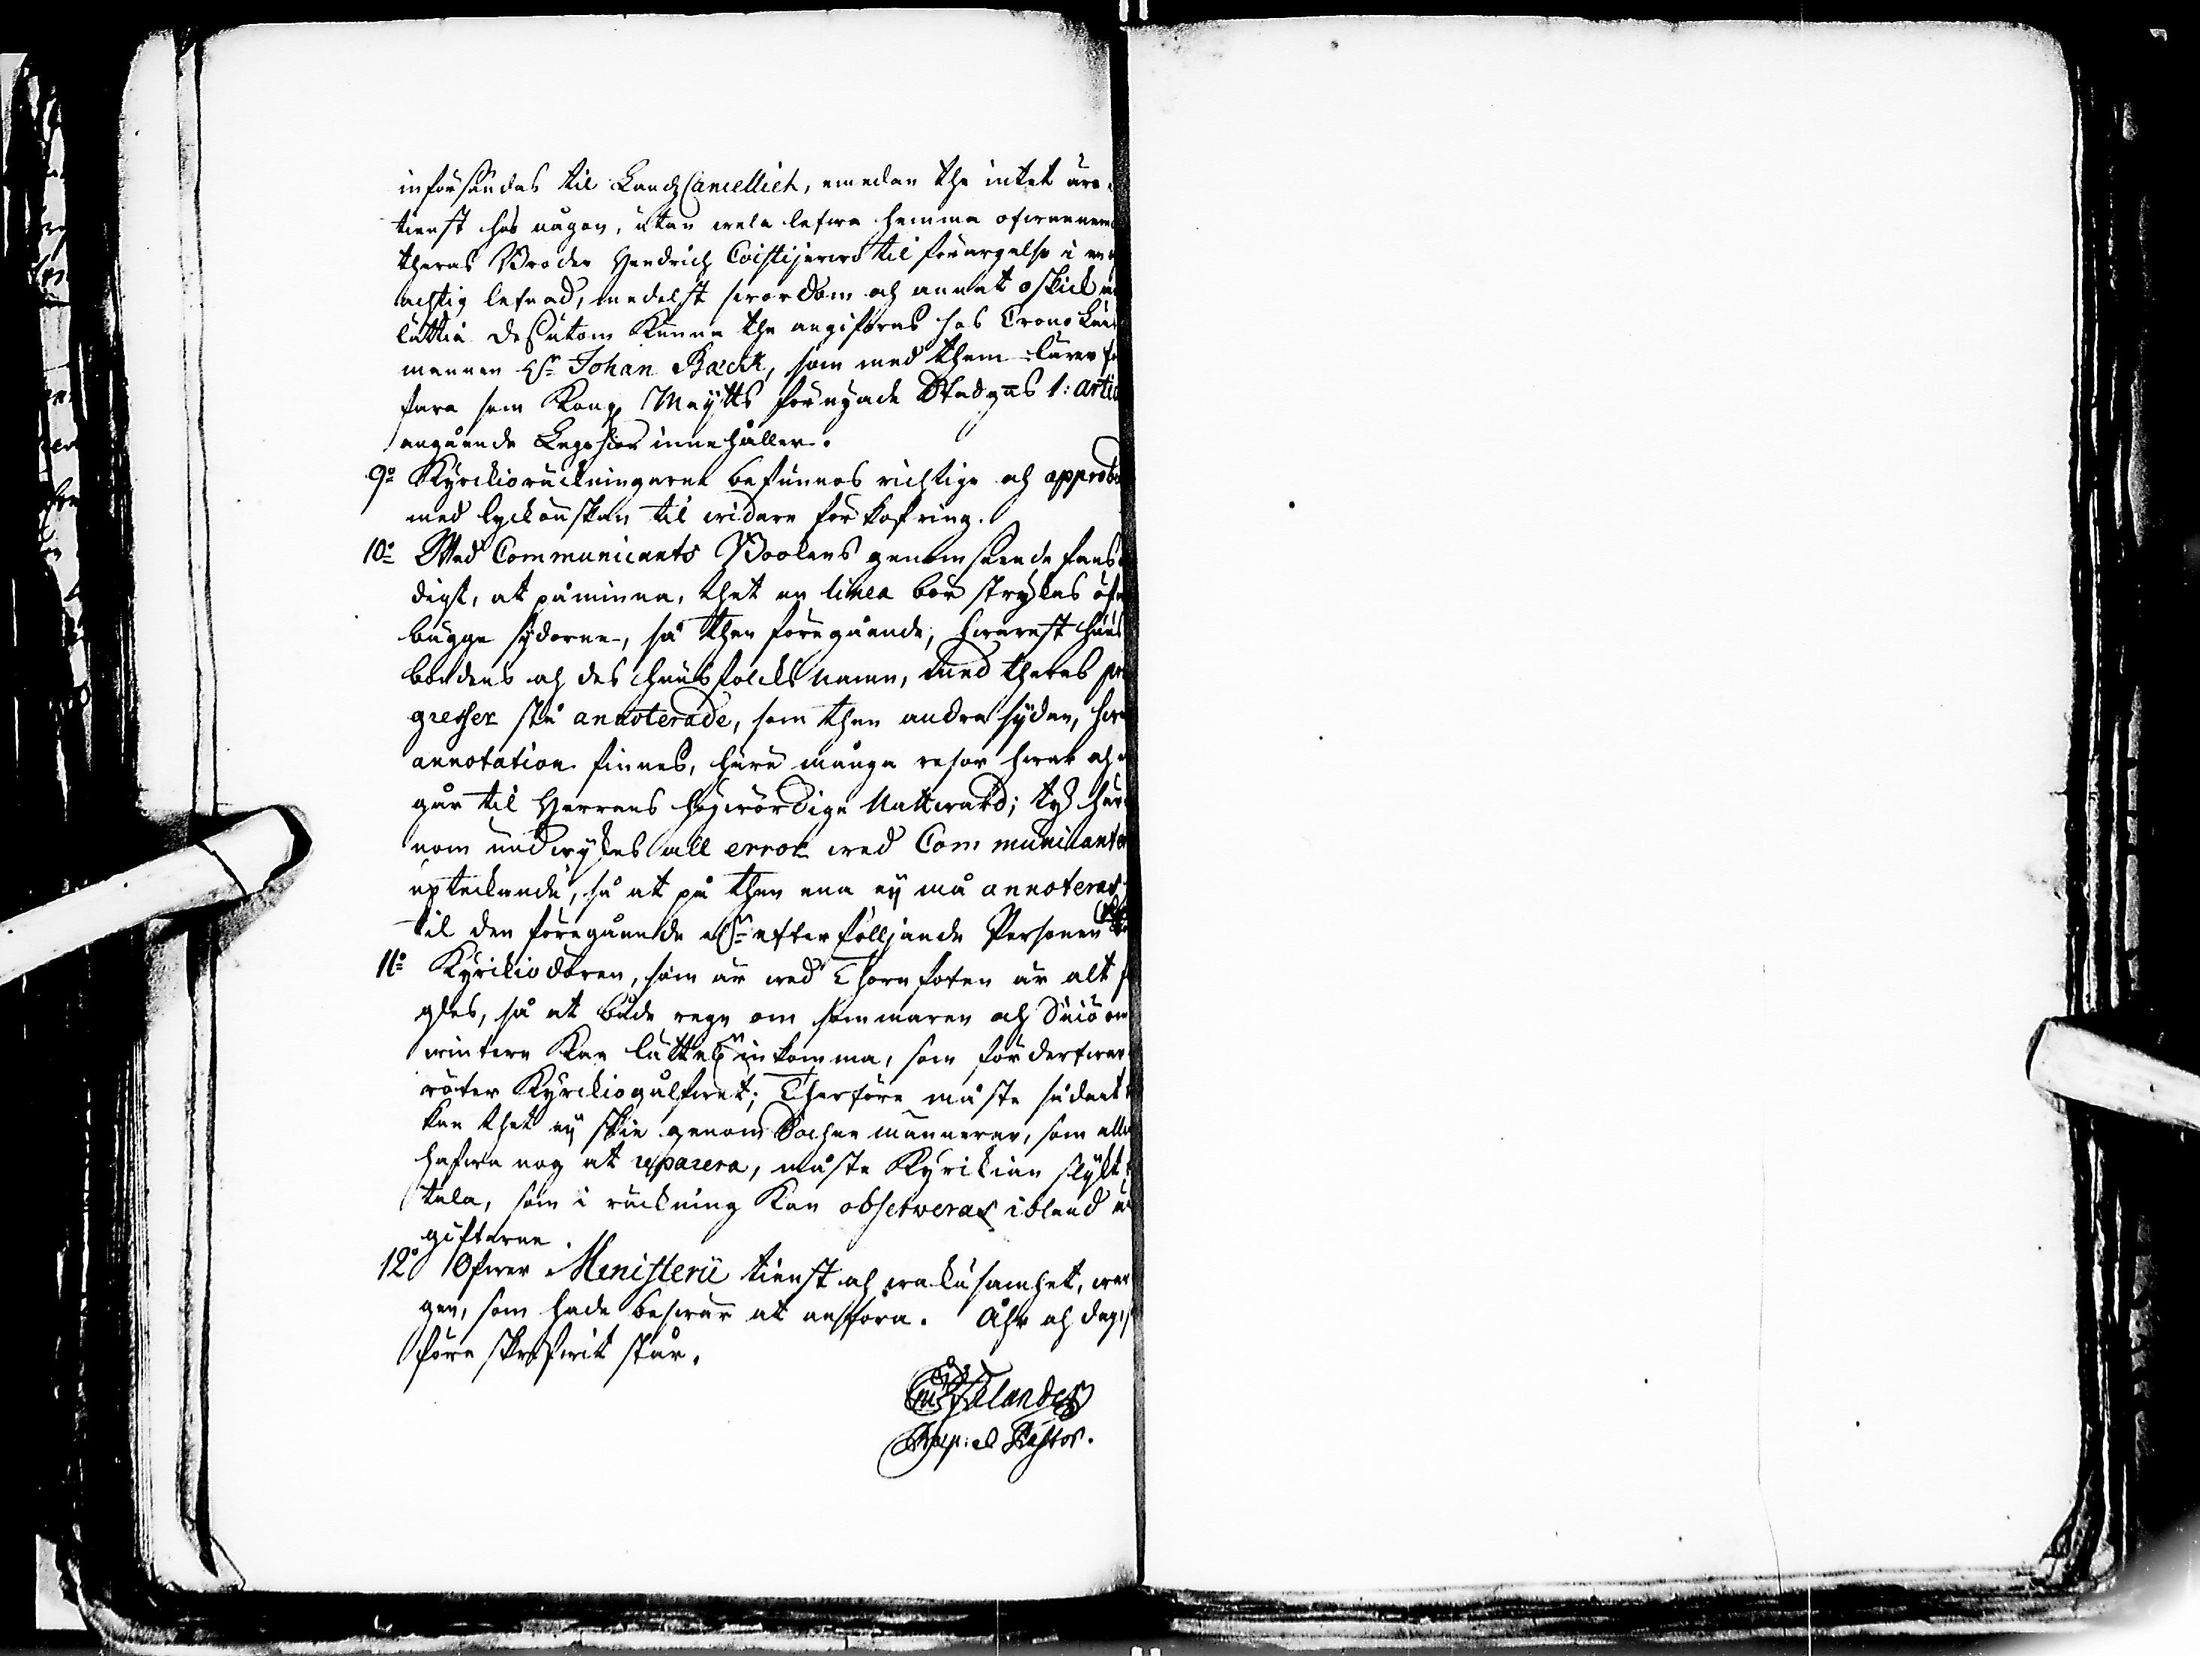 införsändas til LandzCancelliet, emedan the intet äro
tienst hos någon, utan wela lefwa hemma ofwannem
theras Broder Hendrich Coistijerwi til förargelse i en
achtig lefnad, medelst swordom och annat oskick
lättia dessutom kunna the angifwas hos Crono Län
mannen Hr Johan Back, som med them lärer
fara som Kongl Maijtts förnyade Stadgas 1: Artic
angående Legohion innehåller.
9o Kyrckioräckningarne befunnos richtige och approbe
med lyckönskan til widare förkofring.
10o Wed Communicants Bookens genomseende fans
digt, at påminna, thet en linea bör strykas öf
bägge sydorne, så then föregående, hwarest huus
bondens och des huusfolcks namn, med theras pro
gresser stå annoterade, som then andra syden, hwa
annotation finnes, huru många resor hwar och
går til Herrans högwördige Nattward; ty här
nom undwykes all error wed Communicanter
upteckande, så at på then ena ey må annoteras
til den föregående elr efterfölljande Personen
11o Kyrckiodören, som är wed Thornfoten är alt
gles, så at både regn om sommaren och Sniö om
wintern kan lätteln inkomma, som förderfwar
röter Kyrckiogålfwet; Therföre måste sådant
kan thet ey skie genom Sochnemännerne, som alla
hafwa nog at reparera, måste Kyrckian slykt
tala, som i räckning kan observeras ibland u
gifterne.
12o Öfwer Ministerii tienst och wakusamhet, war
gen, som hade beswär at anföra. Åhr och dag, s
före skrefwit står.